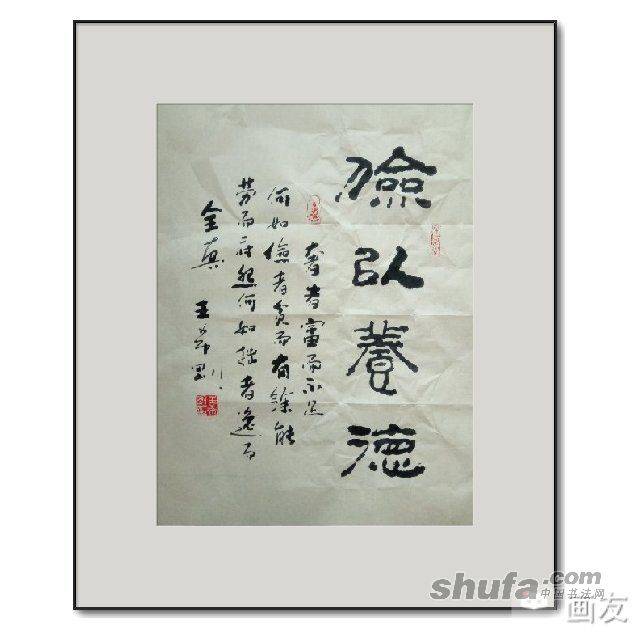 儉以養德
奢者富而不足
何如儉者貧而有餘能
勞而府怨何如拙者逸而
全真 王
shufa.com
中国书法网
画友